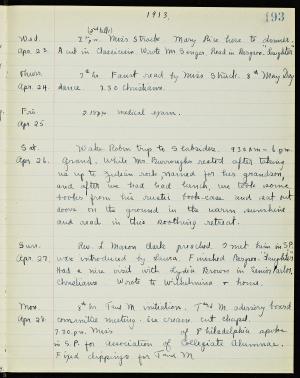 1913.
193
Wed. Miss Strock. Mary Rice here to dinner.
Apr. 23. A cut in Classicism. Wrote Mr Senger. Read in Bergson's "Laughter"
Thurs. 7th hr. Faust read by Miss Struck. 8th May Day
Apr. 24. dance. 3.30 Christians.
Fri. 2.15 p.m. medical exam.
Apr. 25.
Sat. Wake Robin trip to Slabsides. 9.30 A.M. - 6 p.m.
Apr. 26. Grand. While Mr Burroughs rested after taking
us up to Julian rock named for his grandson,
and after we had had lunch, we took some
books from his rustic book-case and sat out
doors on the ground in the warm sunshine
and read in this soothing retreat.
Sun. Rev. preached. I met him in S.P.
Apr. 27. was introduced by Laura. Finished Bergson's "Laughter"
Has a nice visit with Lydia Brown in Senior Parlor.
Christians. Wrote to Wilhelmina & home.
Mon. 8th hr. T and M initiation. T and M advisory board
Apr. 28. committee meeting. Ice cream. Cut chapel.
7.30 p.m. Miss of Philadelphia spoke
in S.P. for Association of Collegiate Alumnae.
Fixed clippings for T and M.